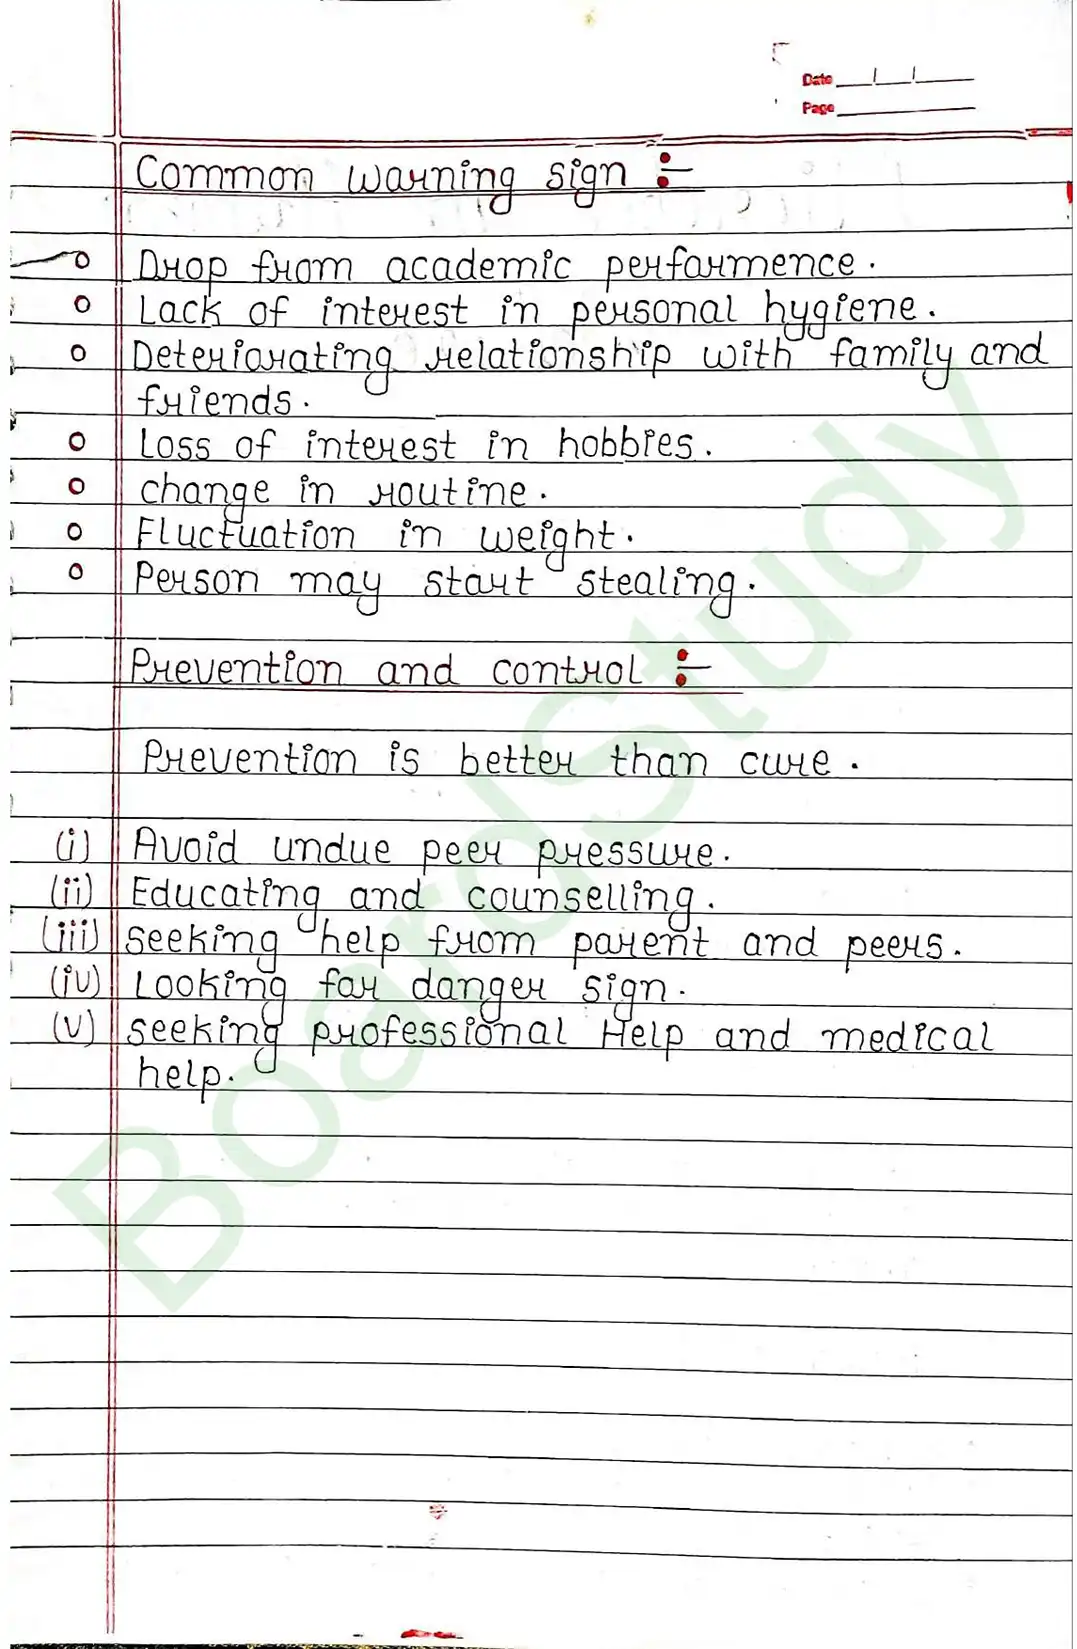 Date
Page
Common warning sign :-
o Drop from academic performence.
o Lack of interest in personal hygiene.
o Deteriorating relationship with family and
friends.
o Loss of interest in hobbies.
o change in routine.
o Fluctuation in weight.
o Person may start stealing.
Prevention and control :-
Prevention is better than cure.
(i) Avoid undue peer pressure.
(ii) Educating and counselling.
(iii) seeking help from parent and peers.
(iv) Looking for danger sign.
(v) seeking professional Help and medical
help.
BoardStudy